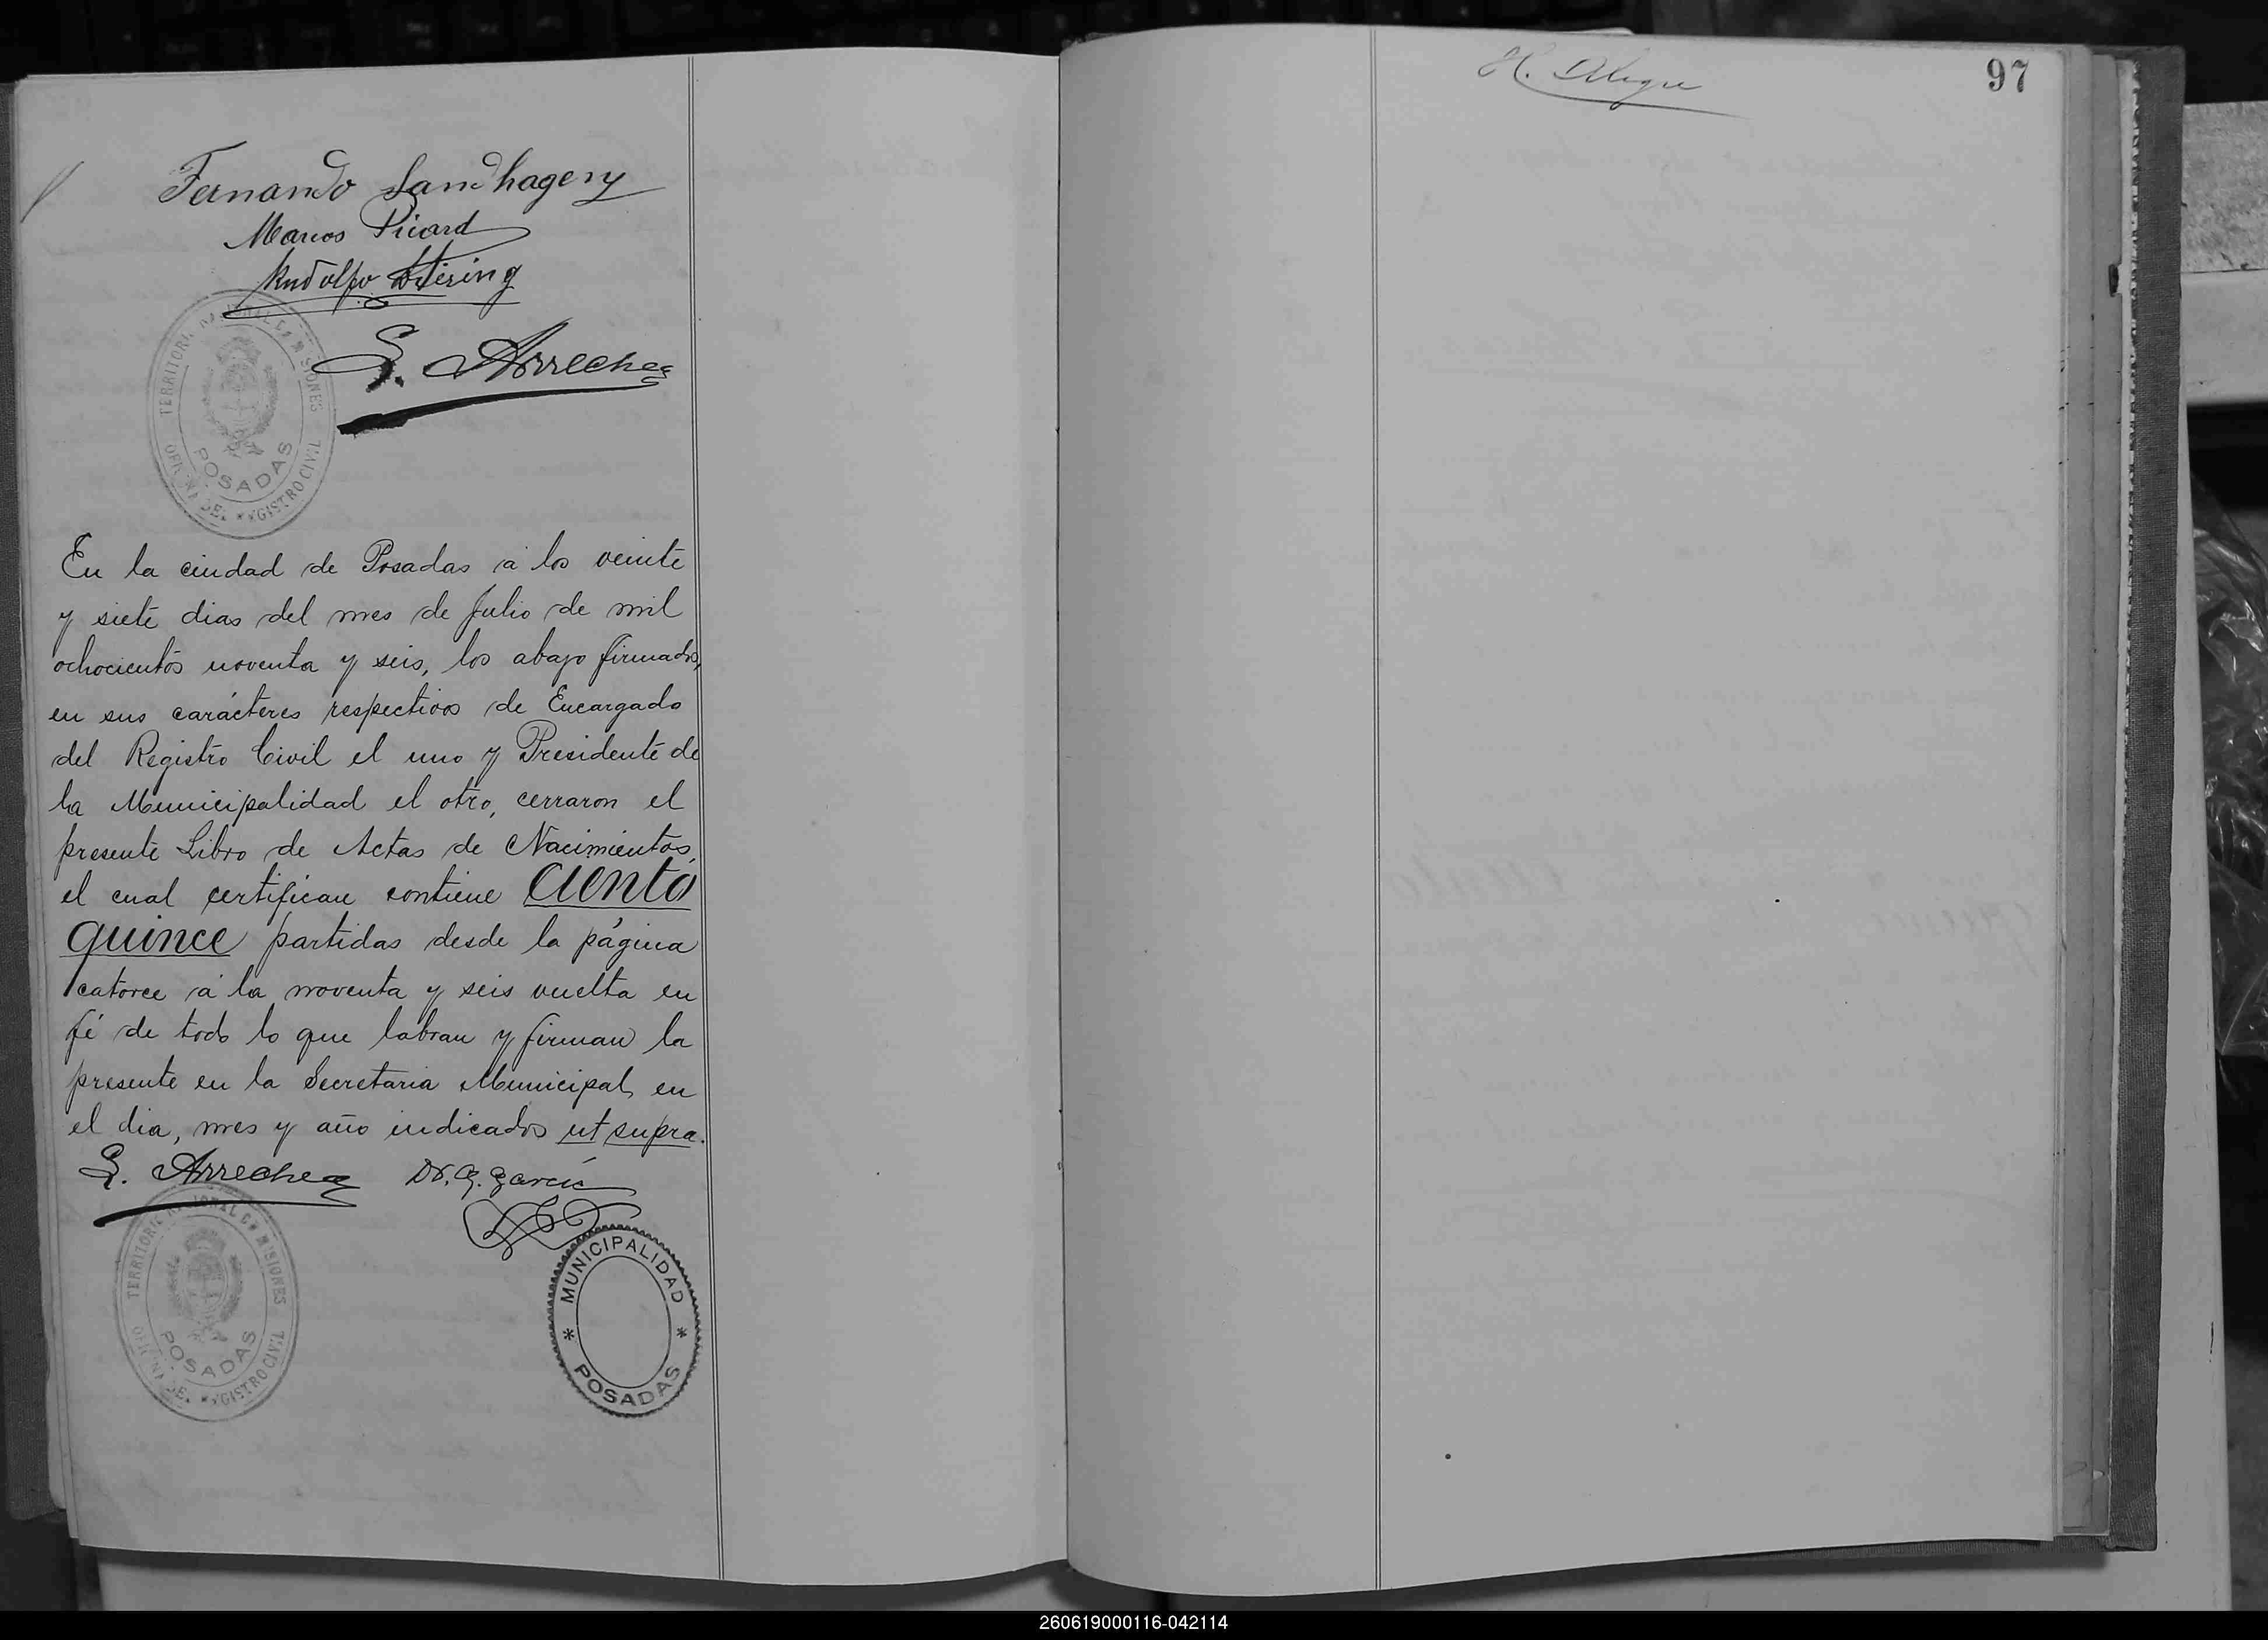 Fernando Sandhagen
Marcos Picard
Rudolfo
S. Arrechea
TERRITORIO NACIONAL DE MISIONES
POSADAS
OFICINA DEL REGISTRO CIVIL
En la ciudad de Posadas á los veinte
y siete dias del mes de Julio de mil
ochocientos noventa y seis, los abajo firmados,
en sus carácteres respectivos de Encargado
del Registro Civil el uno y Presidente de
la Municipalidad el otro, cerraron el
presente Libro de Actas de Nacimientos,
el cual certifican contiene Ciento
quince partidas desde la página
catorce á la noventa y seis vuelta en
fé de todo lo que labran y firman la
presente en la Secretaria Municipal, en
el dia, mes y año indicados ut supra.
S. Arrechea Dr. G. Garcia
TERRITORIO NACIONAL DE MISIONES
POSADAS
OFICINA DEL REGISTRO CIVIL
MUNICIPALIDAD
* *
POSADAS
H. Alegre
97
260619000116-042114